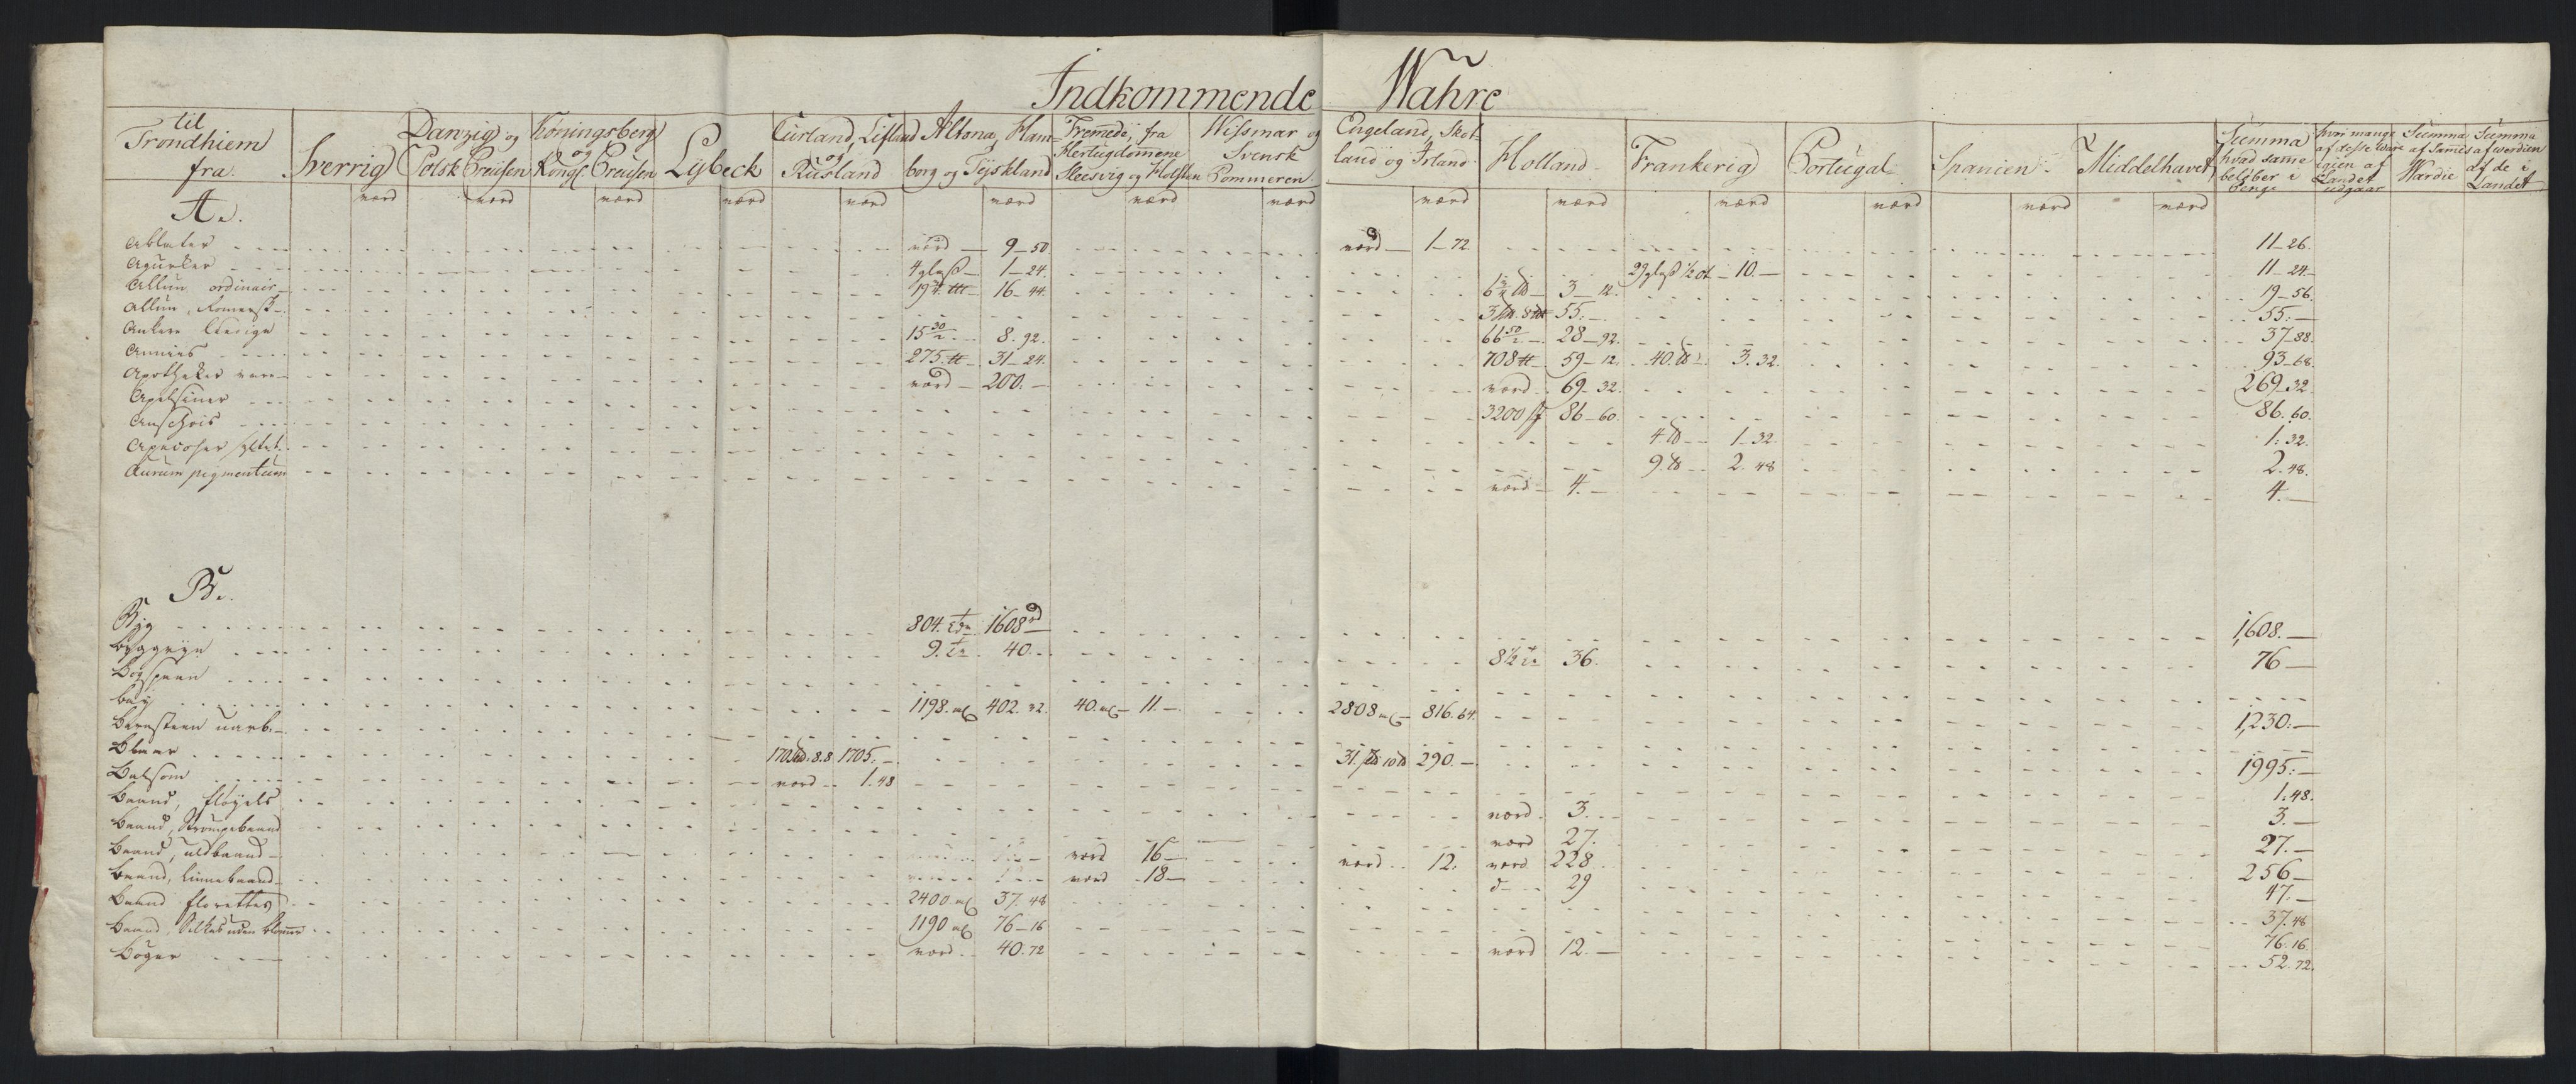 Indkommende Wahre
til Trondhiem fra
Sverrig
Danzig og Polsk Preusen
Köningsberg og Kongl. Preusen
Lybeck
Curland, Lifland og Rusland
Altona, Hamborg og Tyskland
Fremede, fra Hertugdömmene Sleesvig og Holsten
Wissmar og Svensk Pommeren
Engeland, Skotland og Irland
Holland
Frankerig
Portugal
Spanien
Middelhavet
Summa hvad same belöber i Penge
hvor mange af disse Ware igien af Landet udgaar
Summa af Sames Wærdie
Summa af werdien af de i Landet
værd værd værd værd værd værd værd værd værd værd værd værd værd værd
A.
Ablater værd 9-50 værd 1-72 11-26.
Agurker 4 glass 1-24. 29 glass 1/2 ot 10.- 11-24.
Allun ordinair 16-44. 3-12. 19-56.
Allun, Romersk 55.- 55.-
Ankere leedige 8.92. 28-92. 37-88.
Annies 275. ℔ 31-24. 708 ℔ 59-12. 40. ℔ 3.32. 93-68.
Apotheker vare værd 200.- værd 69-32. 269-32.
Apelsiner 3200 86-60. 86.60.
Anschois 4 ℔ 1-32. 1.32.
Apricoser syltet 9 ℔ 2.48 2.48.
Aurum pigmentum værd 4.- 4.-
B.
Byg 804. 1608 rd 1,608.-
Byggryn 9. 40.- 8 1/2 36. 76-
Bogspaan
Bay 1198. 402.32. 40. 11.- 2808 816.64. 1,230.-
Bernsteen uarb.
Blaar 1705.- 290.- 1995.-
Balsom værd 1.48 1.48.
Baand, fløyels værd 3. 3.-
Baand, Strømpebaand værd 27. 27.-
Baand, uldbaand værd 16- værd 12. værd 228 256-
Baand, Linnebaand værd 18- d- 29 47.-
Baand florettes 2400. 37.48 37.48
Baand, Silke uden blomme 1190 76-16 76.16.
Bøger værd 40.72 værd 12.- 52.72.